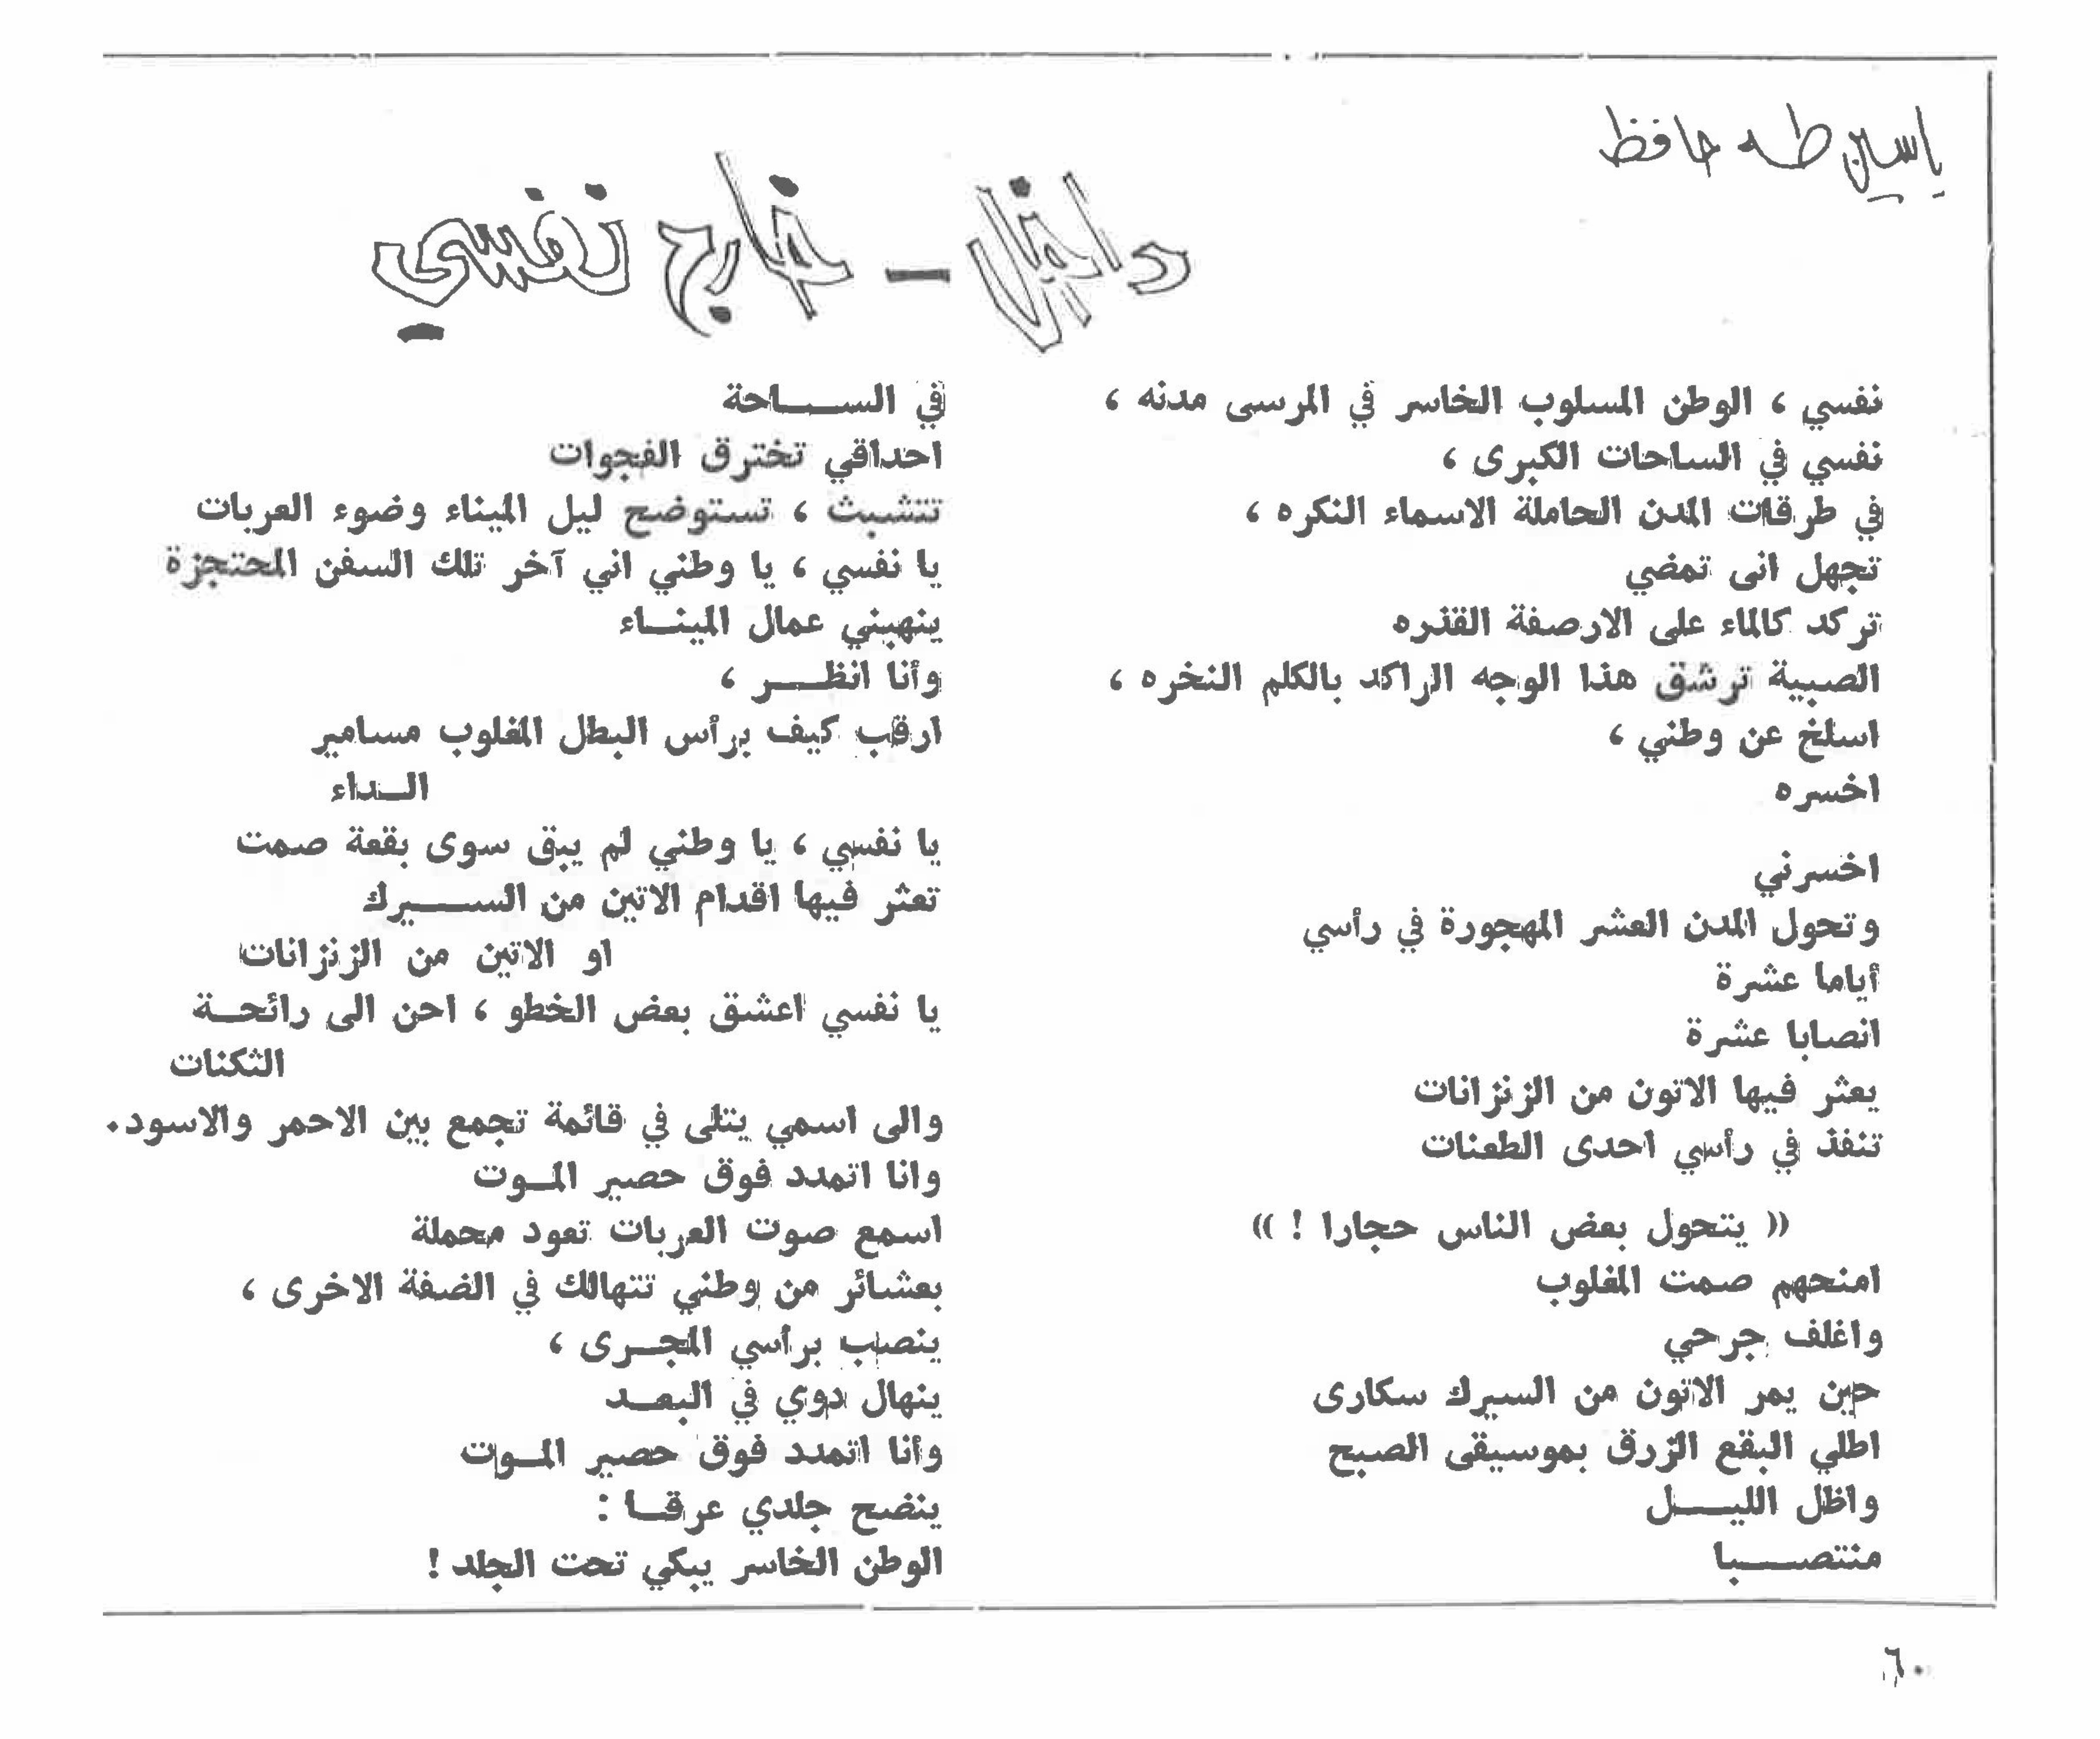 ياسين طه حافظ
داخل - خارج نفسي
نفسي ، الوطن المسلوب الخاسر في المرسى مدنه ،
نفسي في الساحات الكبرى ،
في طرقات المدن الحاملة الاسماء النكره ،
تجهل انى تمضي
تركد كالماء على الارصفة القذره
الصبية ترشق هذا الوجه الراكد بالكلم النخره ،
اسلخ عن وطني ،
اخسره
اخسرني
وتحول المدن العشر المهجورة في رأسي
أياما عشرة
انصابا عشرة
يعثر فيها الاتون من الزنزانات
تنفذ في رأسي احدى الطعنات
(( يتحول بعض الناس حجارا ! ))
امنحهم صمت المغلوب
واغلف جرحي
حين يمر الاتون من السيرك سكارى
اطلي البقع الزرق بموسيقى الصبح
واظل الليــــل
منتصــــبا
في الســــاحة
احداقي تخترق الفجوات
تتشبث ، تستوضح ليل الميناء وضوء العربات
يا نفسي ، يا وطني اني آخر تلك السفن المحتجزة
ينهبني عمال المينــاء
وأنا انظــــر ،
ارقب كيف برأس البطل المغلوب مسامير
الــداء
يا نفسي ، يا وطني لم يبق سوى بقعة صمت
تعثر فيها اقدام الاتين من الســــيرك
او الاتين من الزنزانات
يا نفسي اعشق بعض الخطو ، احن الى رائحــة
الثكنات
والى اسمي يتلى في قائمة تجمع بين الاحمر والاسود.
وانا اتمدد فوق حصير المــوت
اسمع صوت العربات تعود محملة
بعشائر من وطني تتهالك في الضفة الاخرى ،
ينصب برأسي المجــرى ،
ينهال دوي في البعــد
وأنا اتمدد فوق حصير المــوت
ينضح جلدي عرقــا :
الوطن الخاسر يبكي تحت الجلد !
٦٠